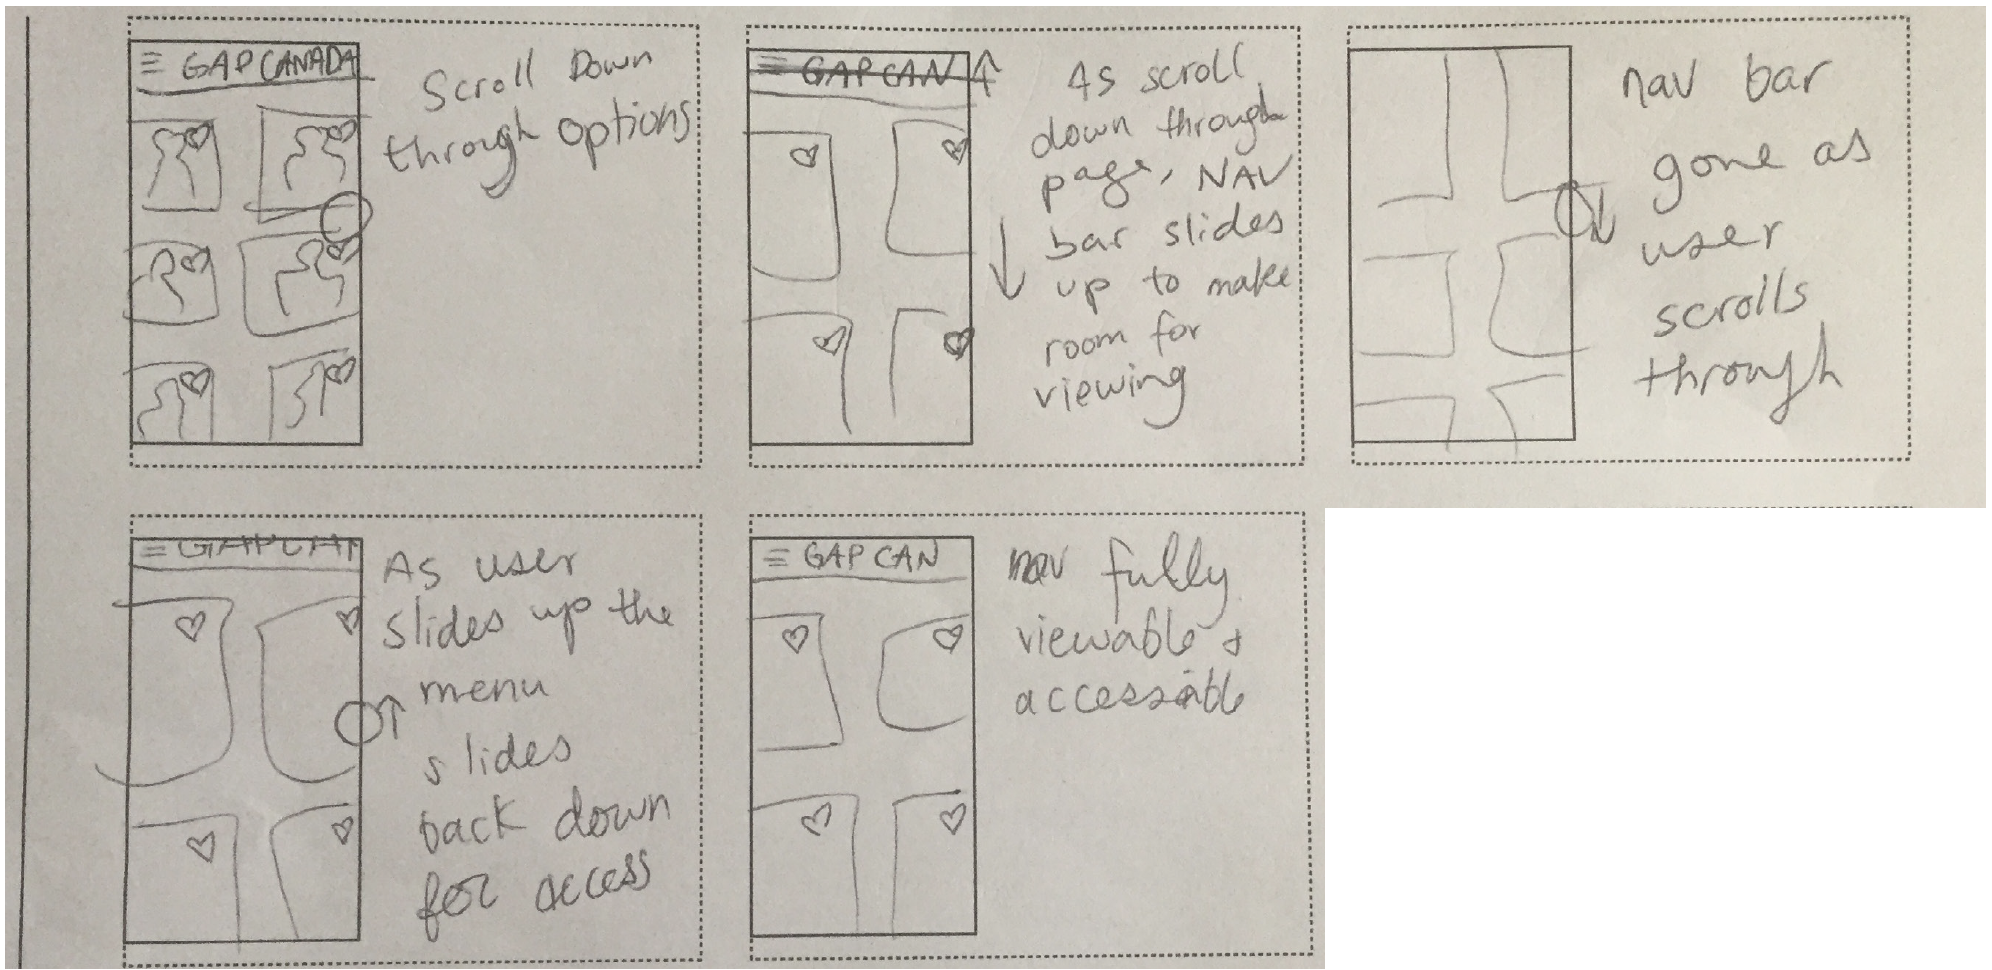 GAP CANADA
Scroll Down
through options
GAP CAN
As scroll
down through
page, NAV
bar slides
up to make
room for
viewing
nav bar
gone as
user
scrolls
through
GAP CAN
As user
slides up the
menu
slides
back down
for access
GAP CAN
nav fully
viewable +
accessible